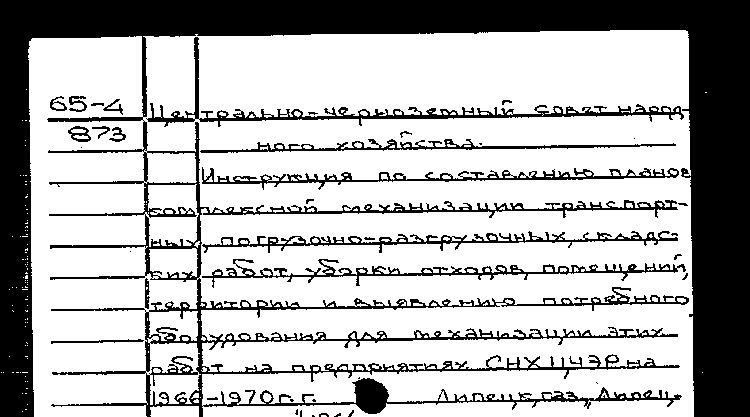 65-4 Центрально-черноземный совет народ-
873 ного хозяйства.
Инструкция по составлению планов
комплексной механизации транспорт-
ных, погрузочно-разгрузочных, складс-
ких работ, уборки отходов, помещений,
территории и выявлению потребного
оборудования для механизации этих
работ на предприятиях СНХ ЦЧЭР на
1966-1970г.г. Липецк, газ. „Липец.